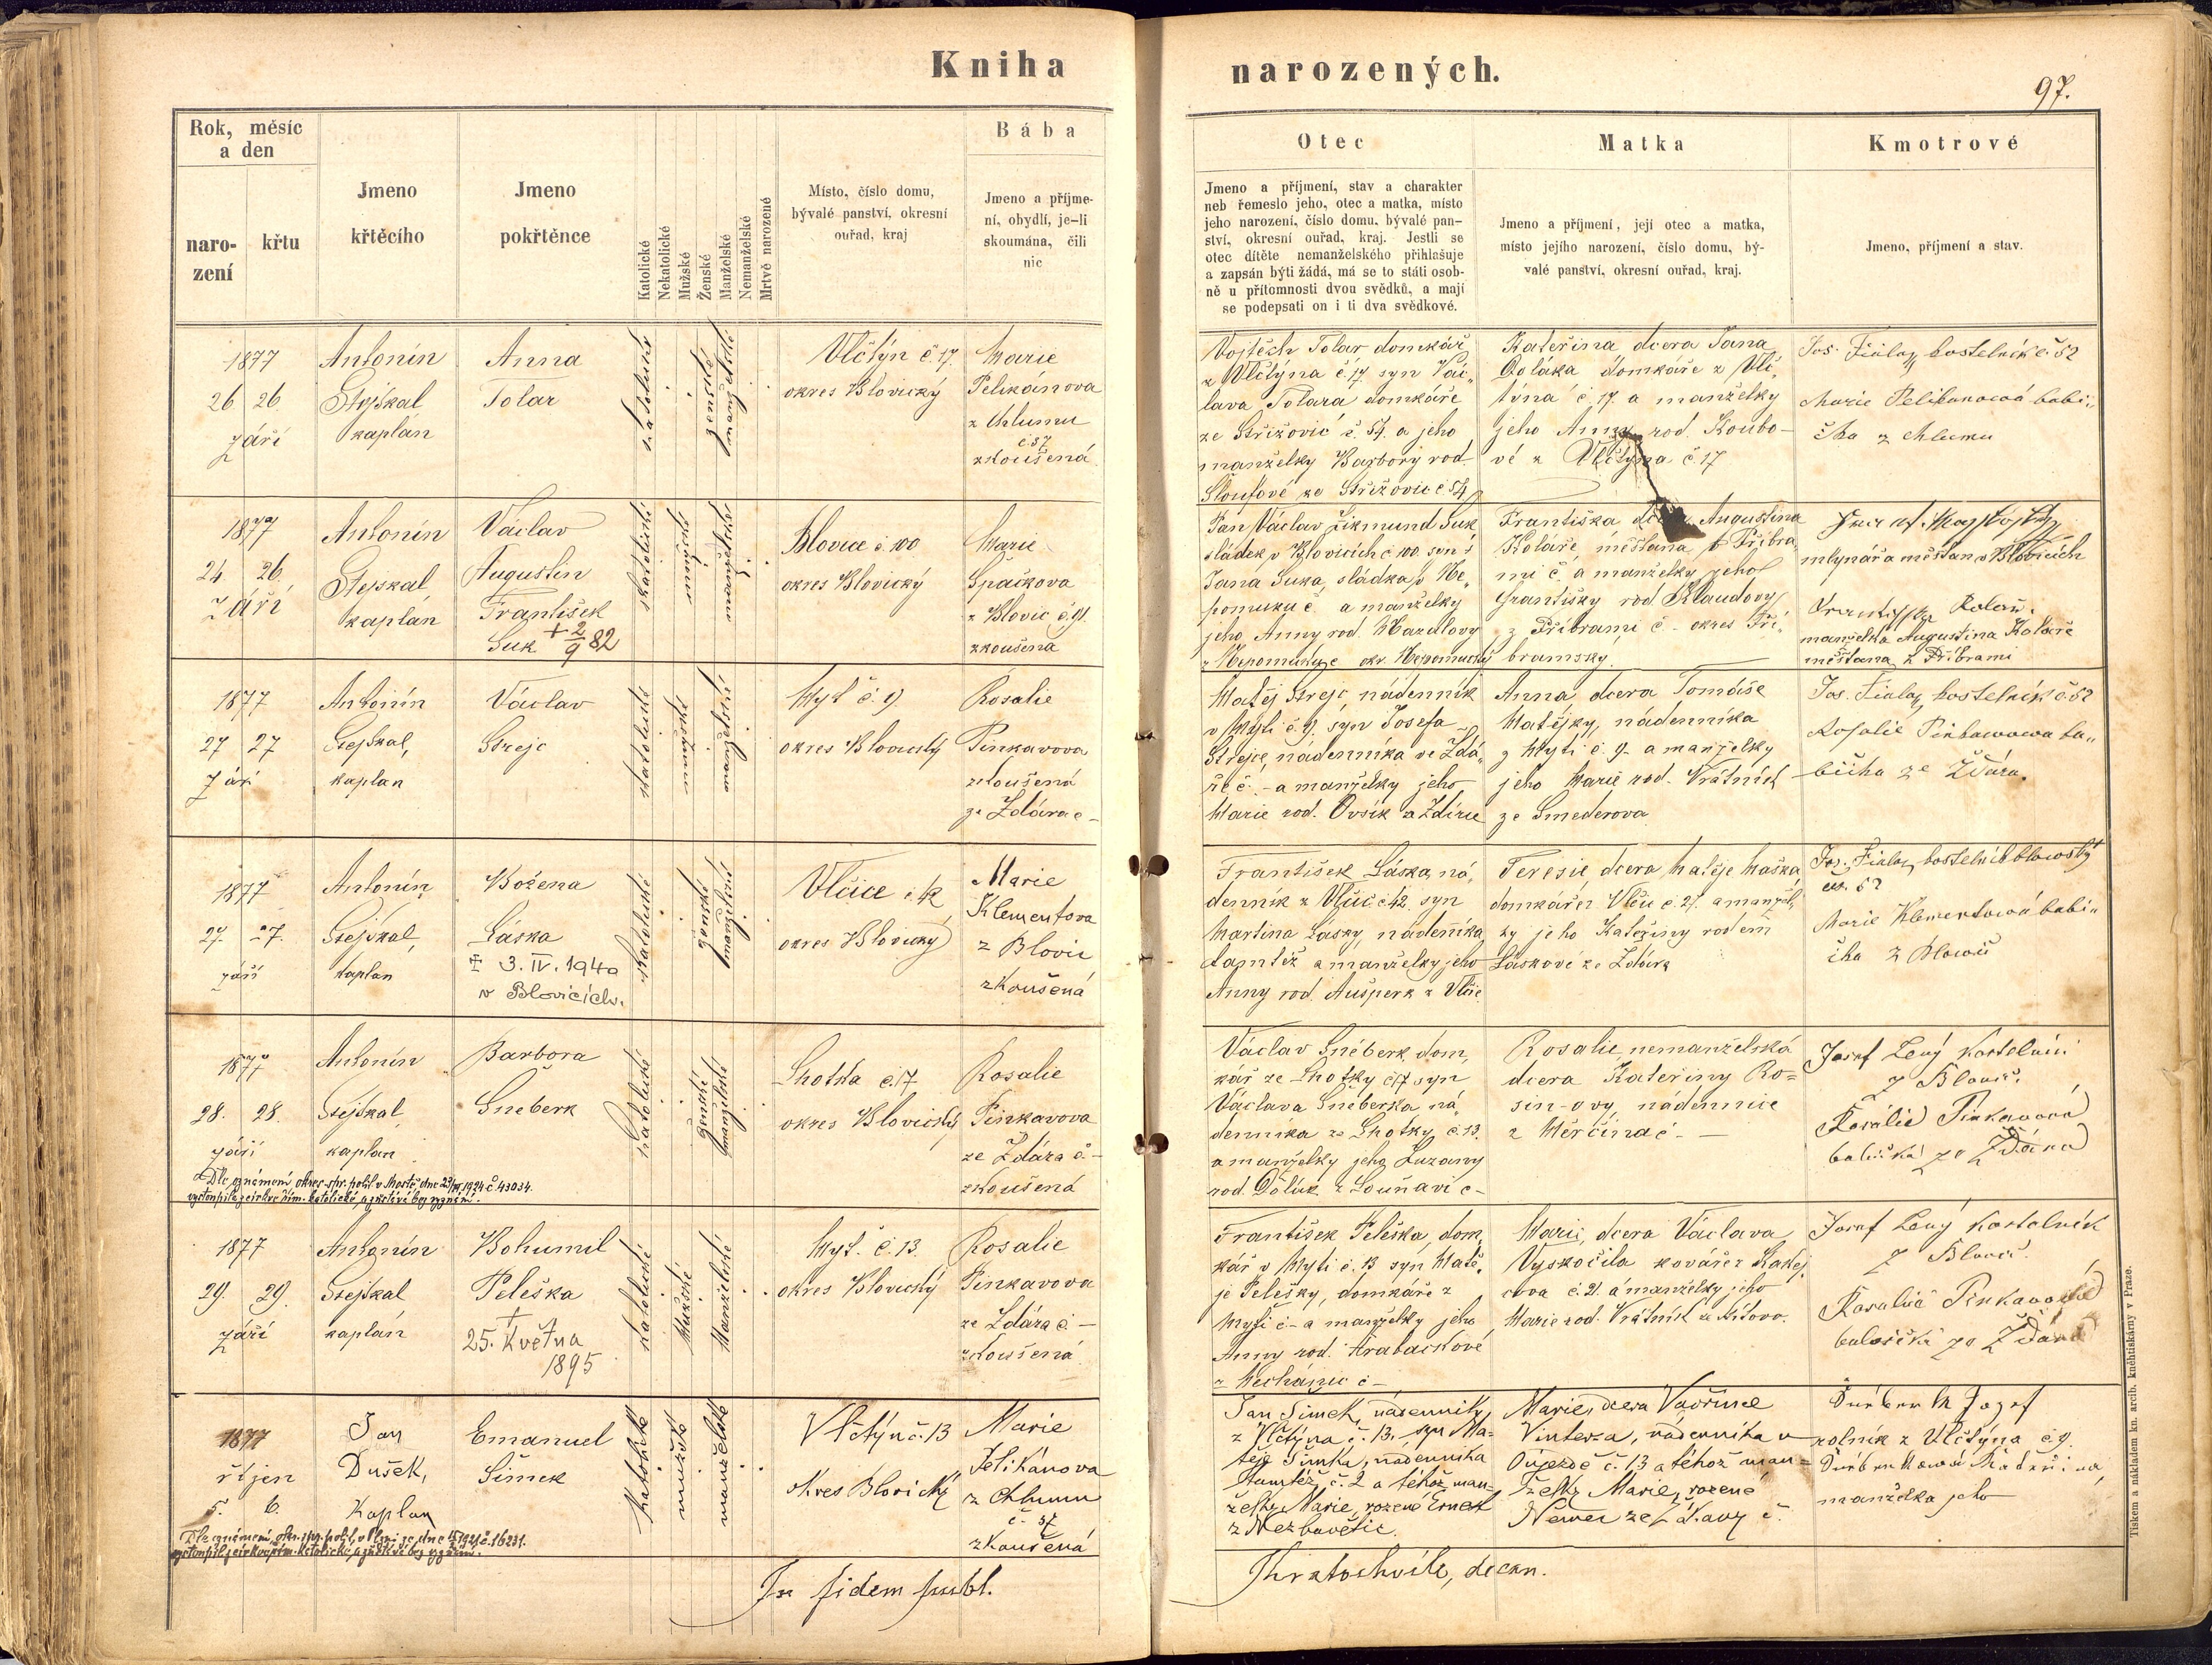 Kniha narozených.
97.
Rok, měsíc a den
narození
křtu
Jmeno křtěcího
Jmeno pokřtěnce
Katolické
Nekatolické
Mužské
Ženské
Manželské
Nemanželské
Mrtvě narozené
Místo, číslo domu, bývalé panství, okresní ouřad, kraj
Bába
Jmeno a příjmení, obydlí, je-li skoumána, čili nic
Otec
Jmeno a příjmení, stav a charakter
neb řemeslo jeho, otec a matka, místo
jeho narození, číslo domu, bývalé pan-
ství, okresní ouřad, kraj. Jestli se
otec dítěte nemanželského přihlašuje
a zapsán býti žádá, má se to státi osob-
ně u přítomnosti dvou svědků, a mají
se podepsati on i ti dva svědkové.
Matka
Jmeno a příjmení, její otec a matka,
místo jejího narození, číslo domu, bý-
valé panství, okresní ouřad, kraj.
Kmotrové
Jmeno, příjmení a stav.
1877
26 26
září
Antonín
Stejskal
kaplán
Anna
Tolar
katolické
ženské
manželské
Vlčtýn č. 17
okres Blovický
Marie
Pelikánova
z Chlumu
č. 37
zkoušená
Vojtěch Tolar domkář
z Vlčtýna č. 17 syn Vác-
lava Tolara domkáře
ze Střížovic č. 54. a jeho
manželky Barbory rod.
ze Střížovic č. 54
Kateřina dcera Jana
domkáře z Vlč-
týna č. 17. a manželky
jeho Anny rod. Koubo-
vé z Vlčtýna č. 17
Jos. Fiala, kostelník č. 52
Marie Pelikanowá babi-
čka z Chlumu
1877
24. 26.
září
Antonín
Stejskal
kaplán
Václav
Augustin
František
Suk + 2/9 82
katolické
mužské
manželské
Blovice č. 100
okres Blovický
Marie
Špačkova
z Blovic č. 91
zkoušená
Pan Václav Zikmund Suk
sládek v Blovicích č. 100. syn
Jana Suka, sládka v Ne-
pomuku č. a manželky
jeho Anny rod.
z Nepomuku okr. Nepomucký
Františka dcera Augustina
Koláře, měšťana v Příbra-
mi č. a manželky jeho
Františky rod.
z Příbrami č. - okres Pří-
bramský.
mlynář a měšťan v Blovicích
Františka Kolář.
manželka Augustina Koláře
měšťana z Příbrami
1877
27 27
září
Antonín
Stejskal,
kaplan
Václav
Strejc
katolické
mužské
manželské
Myť č. 9.
okres Blovický
Rosalie
Pinkavova
zkoušená
ze Ždára č -
Matěj Strejc, nádenník
v Mýti č. 9. syn Josefa
Strejce, nádenníka ve Ždá-
ře č. - a manželky jeho
Marie rod. Ovsík z Ždírce
Anna dcera Tomáše
Matějky, nádenníka
z Mýti č. 9 - a manželky
jeho Marie rod. Vrátník
ze Smederova
Jos. Fiala, kostelník č. 52
Rosalie Pinkawowa ba-
bička ze Ždára.
1877
27. 27.
září
Antonín
Stejskal,
kaplan
Božena
Láska
‡ 3. IV. 1940
v Blovicích.
katolické
ženské
manželské
Vlčice č. 42
okres Blovický
Marie
Klementova
z Blovic
zkoušená
František Láska, ná-
denník z Vlčic č. 42. syn
Martina Lásky, nádeníka
tamtéž a manželky jeho
Anny rod. Aušperk z Vlčic
Teresie, dcera Matěje Maška
domkáře z Vlčic č. 27. a manžel-
ky jeho Kateřiny rodem
Láskové ze Ždára
Jos. Fiala, kostelník blowský
č. 52
Marie Klementowá babi-
čka z Blowic
1877
28. 28.
září
Antonín
Stejskal
kaplan
Barbora
Šneberk
katolické
ženské
manželské
Lhotka č. 17
okres Blovický
Rosalie
Pinkavova
ze Ždára č -
zkoušená
Dle oznámení okres. spr. polit. v Mostě, dne 1924 č. 43034.
vystoupila z církve řím. katolické, a zůstává bez vyznání.
Václav Šneberk, dom-
kář ze Lhotky č. 17 syn
Václava Šneberka ná-
denníka ze Lhotky č. 13.
a manželky jeho Zuzany
rod.
Rosalie, nemanželská
dcera Kateřiny Ro=
sin-ovy, nádennice
z Měrčína č - -
Josef Lený kostelník
z Blovic
Rosálie Pinkavová
babička ze Ždára
1877
29. 29.
září
Antonín
Stejskal
kaplan
Bohumil
Peleška
+
25. Května
1895
katolické
Mužské
Manželské
Myť. č. 13.
okres Blovický
Rosalie
Pinkavova
ze Ždára č -
zkoušená
František Peleška, dom-
kář v Mýti č. 13 syn Matě-
je Pelešky, domkáře z
Mýti č - a manželky jeho
Anny rod. Hrabáckové
č -
Marie, dcera Václava
Vyskočila kováře z Kakej-
cova č. 21. a manželky jeho
Marie rod. Vrátník
Josef Lený kostelník
z Blovic.
Rosalie Pinkavová
babička ze Ždára
1877
říjen
5. 6.
Jan
Dušek,
Kaplan
Emanuel
Šimek
katolické
mužské
manželské
Vlčtýn č. 13
okres Blovický
Marie
Pelikánova
z Chlumu
č. 37
zkoušená
Dle oznámení okr. spr. polit. v Plzni ze dne 1921 č. 16231.
vystoupil z církve řím. katolické, a zůstává bez vyznání.
Jan Šimek, nádenník,
z Vlčtýna č. 13. syn Ma-
těje Šimka, nádenníka
tamtéž č. 2 a téhož man-
želky Marie, rozené Ernest
z Nezbavětic.
Marie, dcera Vavřince
Vinterza, nádenníka v
Oujezdě č. 13 a téhož man=
želky Marie, rozené
Nemec ze Žákavy č.
Josef
rolník z Vlčtýna č. 9.
manželka jeho
In fidem publ.
Kratochvíle, decan.
Tiskem a nákladem kn. arcib. kněhtiskárny v Praze.